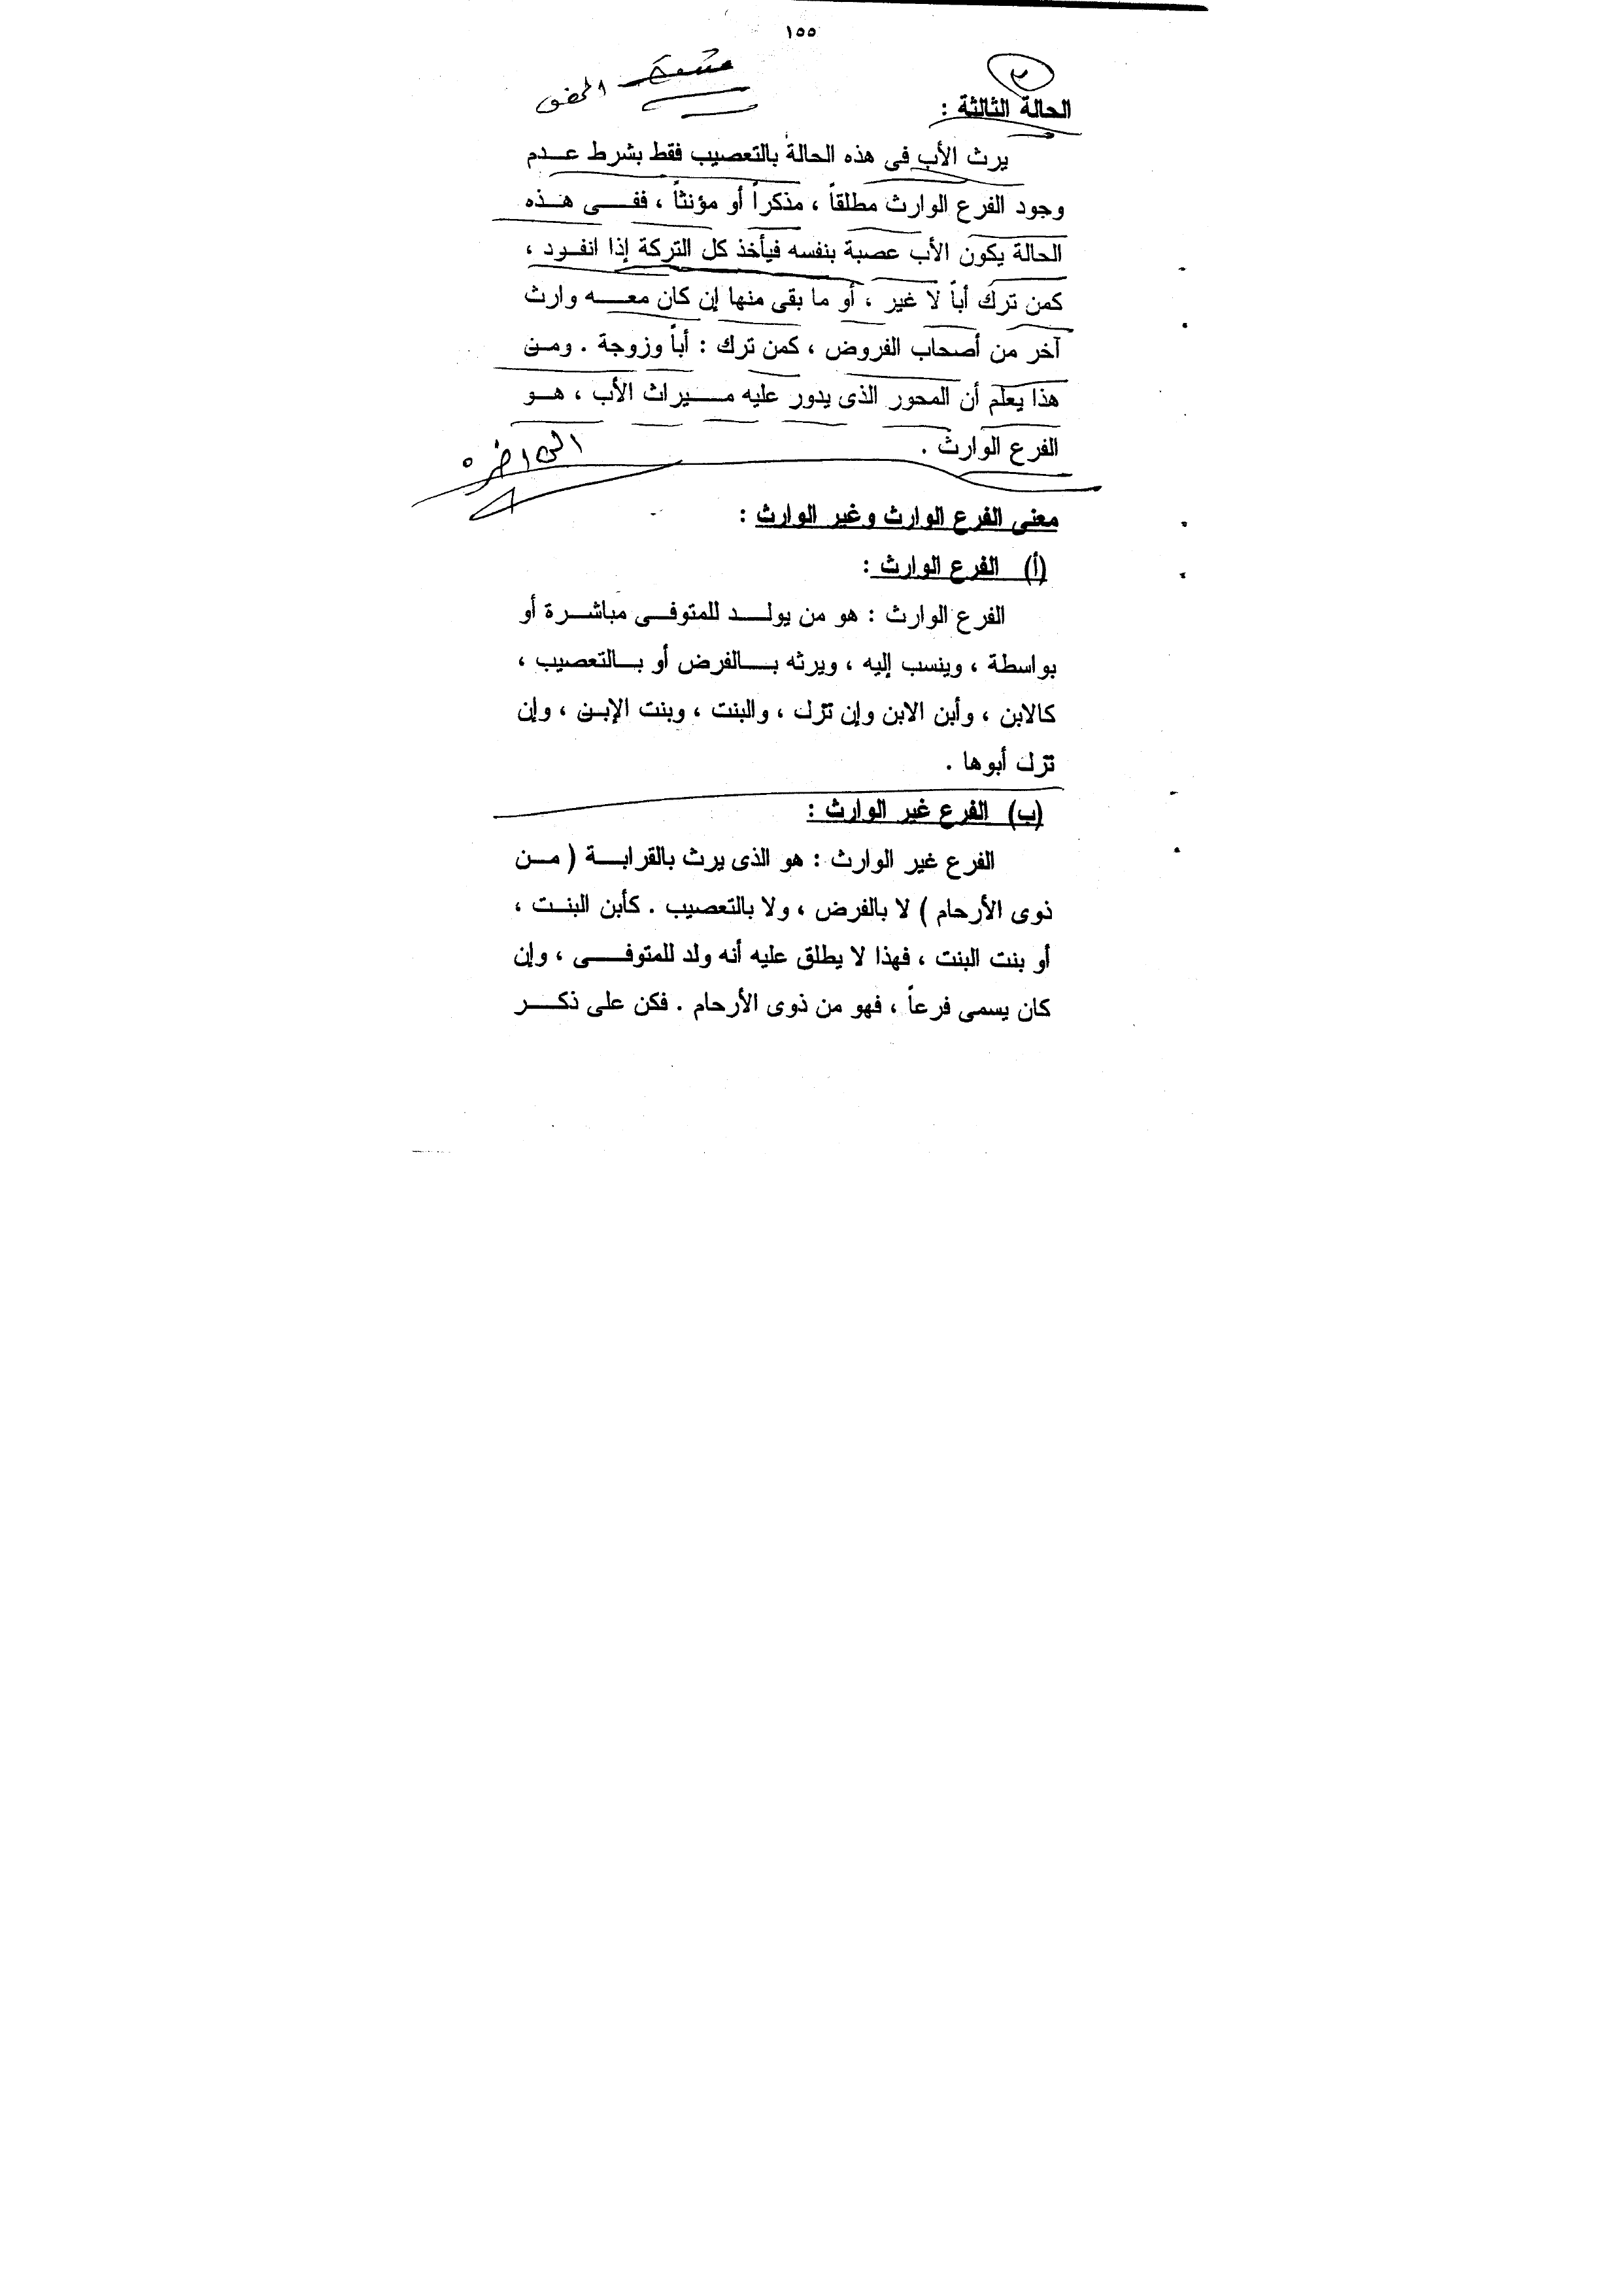 ١٥٥
الحالة الثالثة :
يرث الأب فى هذه الحالة بالتعصيب فقط بشرط عدم
وجود الفرع الوارث مطلقاً ، مذكراً أو مؤنثاً ، ففى هذه
الحالة يكون الأب عصبة بنفسه فيأخذ كل التركة إذا انفرد ،
كمن ترك أباً لا غير ، أو ما بقى منها إن كان معه وارث
آخر من أصحاب الفروض ، كمن ترك : أباً وزوجة . ومن
هذا يعلم أن المحور الذى يدور عليه ميراث الأب ، هو
الفرع الوارث .
معنى الفرع الوارث وغير الوارث :
(أ) الفرع الوارث :
الفرع الوارث : هو من يولد للمتوفى مباشرة أو
بواسطة ، وينسب إليه ، ويرثه بالفرض أو بالتعصيب ،
كالابن ، وأبن الابن وإن نزل ، والبنت ، وبنت الإبن ، وإن
نزل أبوها .
(ب) الفرع غير الوارث :
الفرع غير الوارث : هو الذى يرث بالقرابة ( من
ذوى الأرحام ) لا بالفرض ، ولا بالتعصيب . كأبن البنت ،
أو بنت البنت ، فهذا لا يطلق عليه أنه ولد للمتوفى ، وإن
كان يسمى فرعاً ، فهو من ذوى الأرحام . فكن على ذكر